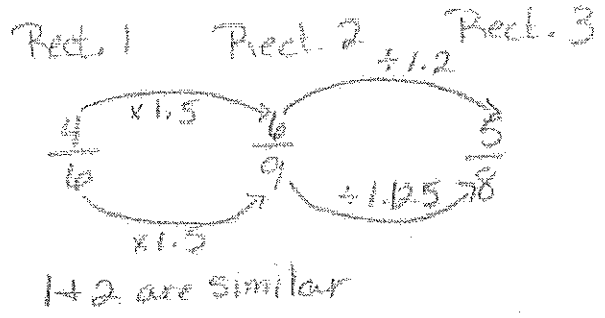 Rect. 1 Rect. 2 Rect. 3
÷1.2
x1.5
4/6 6/9 5/8
÷1.125
x1.5
1+2 are similar